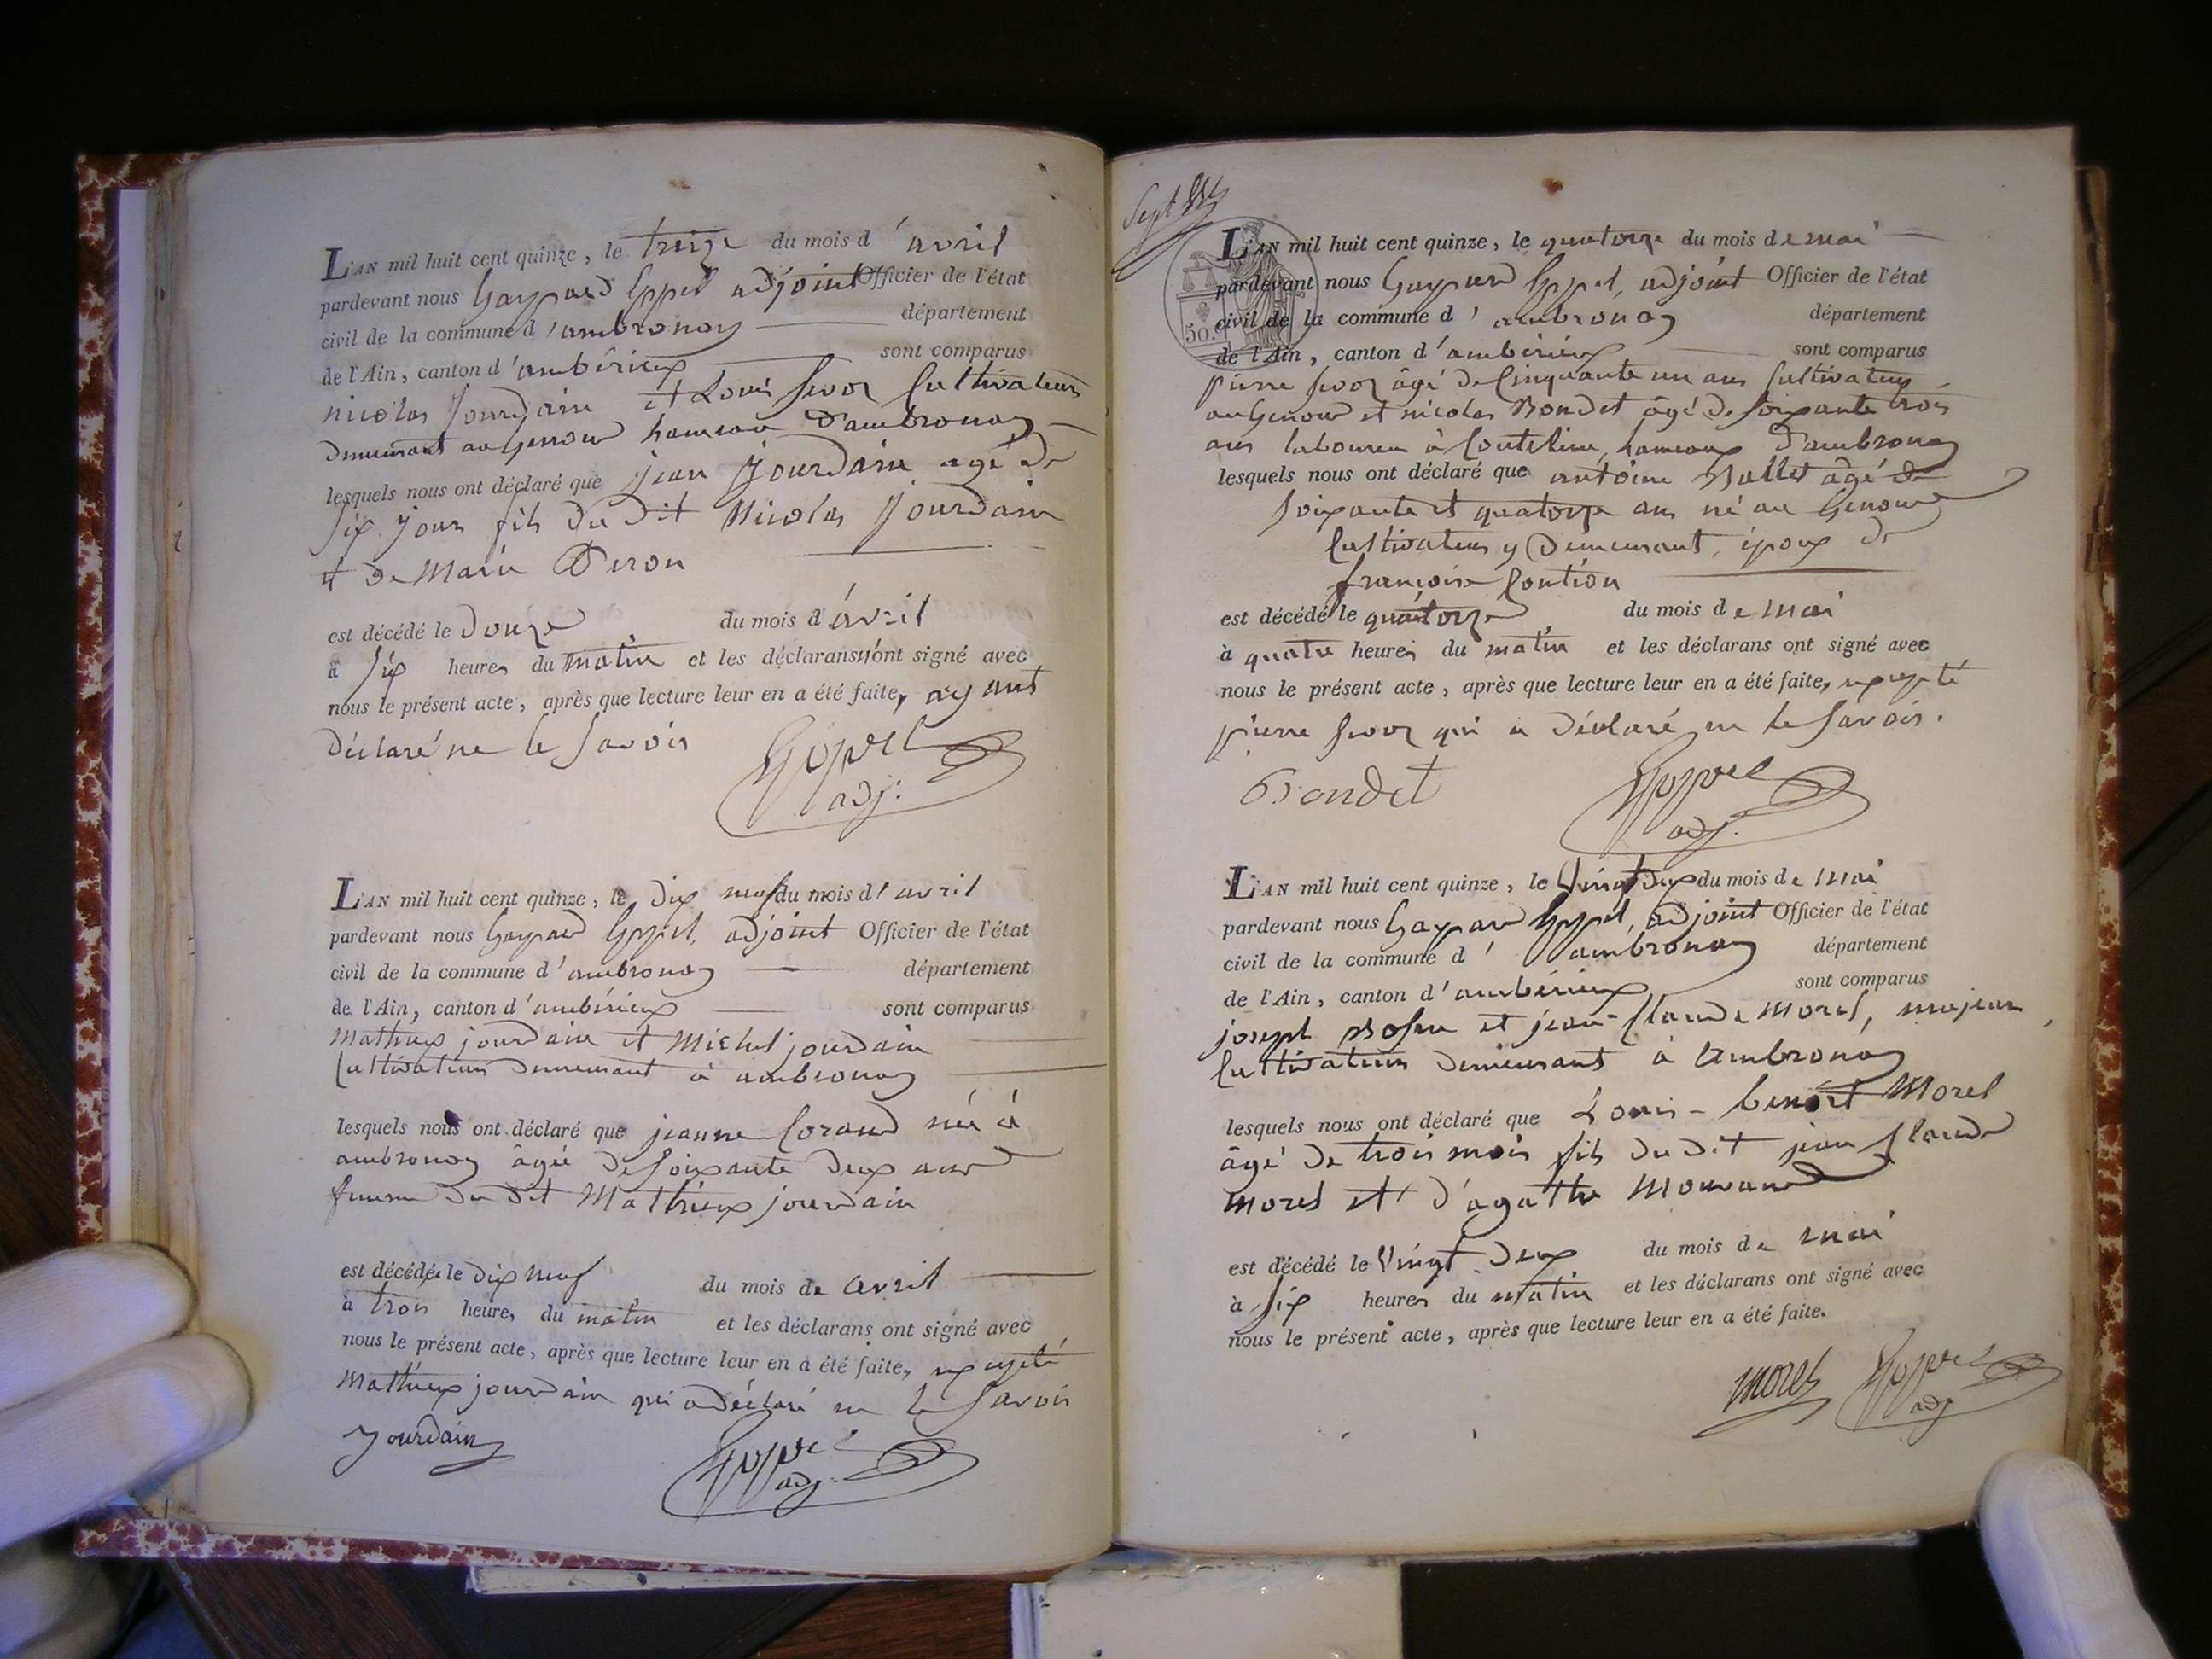 L'AN mil huit cent quinze, le treize du mois d'avril
pardevant nous Gaspard Eppel adjoint Officier de l'état
civil de la commune d'ambronay département
de l'Ain, canton d'ambérieux sont comparus
nicolas Jourdain et Louis Cultivateurs
demeurant au genoud hameau d'ambronay
lesquels nous ont déclaré que jean Jourdain agé de
six jours fils du dit Nicolas Jourdain
et de Marie
est décédé le douze du mois d'avril
à six heures du matin et les déclarans n'ont signé avec
nous le présent acte, après que lecture leur en a été faite, ayant
déclaré ne le savoir
Eppel
adj.
L'AN mil huit cent quinze, le dix neuf du mois d'avril
pardevant nous Gaspard Eppel, adjoint Officier de l'état
civil de la commune d'ambronay département
de l'Ain, canton d'ambérieux sont comparus
Mathieux jourdain et Michel jourdain
Cultivateurs demeurant à ambronay
lesquels nous ont déclaré que jeanne Corand née à
ambronay âgée de soixante deux ans
femme du dit Mathieux jourdain
est décédée le dix neuf du mois de avril
à trois heures du matin et les déclarans ont signé avec
nous le présent acte, après que lecture leur en a été faite, excepté
Mathieux jourdain qui a déclaré ne le savoir
Jourdain
Eppel
adj.
Sept
50.
L'AN mil huit cent quinze, le quatorze du mois de mai
pardevant nous Gaspard Eppel, adjoint Officier de l'état
civil de la commune d'ambronay département
de l'Ain, canton d'ambérieux sont comparus
pierre âgé de Cinquante un ans Cultivateur
au Genoud et nicolas Bondet âgé de soixante trois
ans laboureur à Coutelieu, hameaux d'ambronay
lesquels nous ont déclaré que antoine Ballet âgé de
soixante et quatorze ans né au Genoud
Cultivateur y demeurant, époux de
françoise
est décédé le quatorze du mois de mai
à quatre heures du matin et les déclarans ont signé avec
nous le présent acte, après que lecture leur en a été faite, excepté
pierre qui a déclaré ne le savoir.
Bondet
Eppel
adj.
L'AN mil huit cent quinze, le Vingt deux du mois de mai
pardevant nous Gaspard Eppel, adjoint Officier de l'état
civil de la commune d'ambronay département
de l'Ain, canton d'ambérieux sont comparus
joseph et jean-Claude Morel, majeurs
Cultivateurs demeurants à Ambronay
lesquels nous ont déclaré que Louis-benoit Morel
âgé de trois mois fils du dit jean Claude
Morel et d'agathe
est décédé le Vingt deux du mois de mai
à six heures du matin et les déclarans ont signé avec
nous le présent acte, après que lecture leur en a été faite.
Morel
Eppel
adj